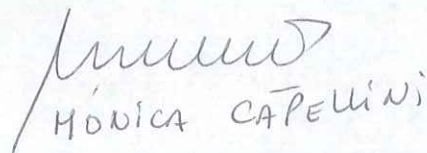 MÓNICA CAPELLINI